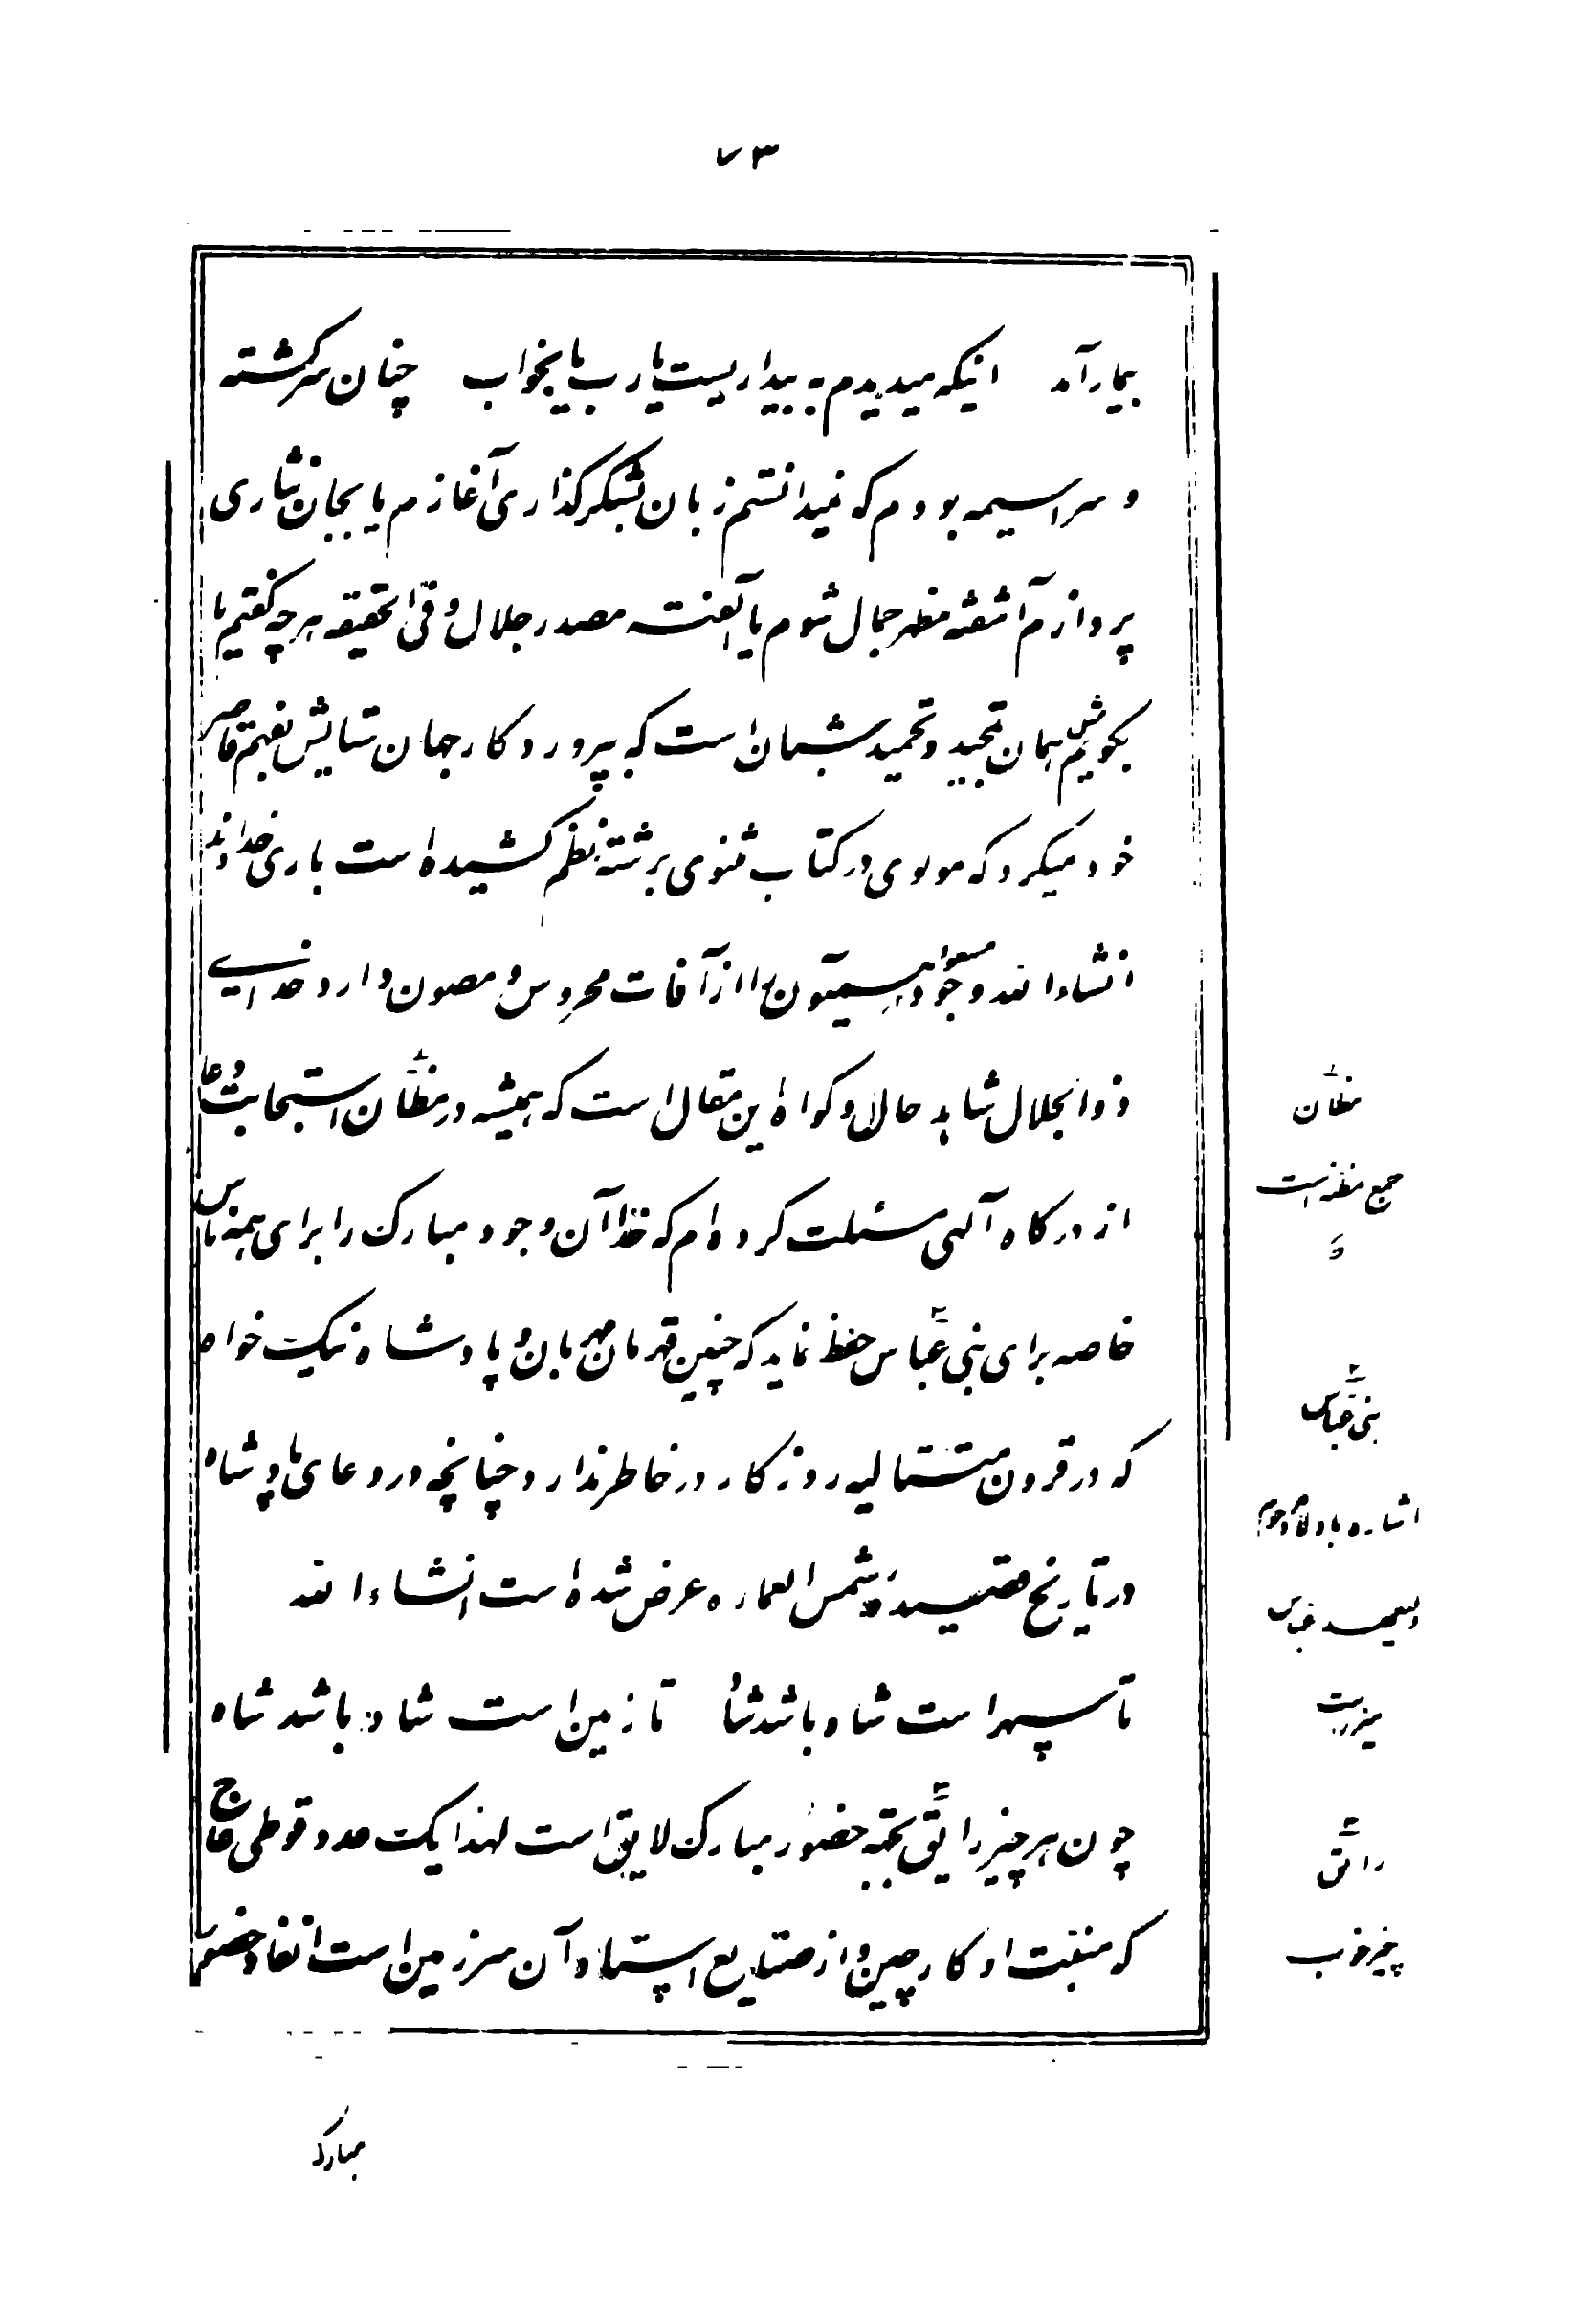 ۷۳
بیمار آمد اینکه میدیدم به بیداریست یارب یا بخواب چنان سرگشته
و سراسیمه بودم که نمیدانستم زبان بشکرگذاری آغازم یا بجان نثاری
پردازم آشفته مظهر جمال شوم یا آلفته مصدر جلال و فی الحقیقه هرچه گفتیم یا
بگوئیم همان تمجید و تحمید شبان است که پروردگار جهان ستایش بفهم قاصر
خود میکرد که مولوی در کتاب مثنوی برشته نظم کشیده است باری خداوند
انشاءالله وجود مسعود را از آفات محروس و مصون دارد خدای
ذوالجلال شاهد حال و گواه این مقال است که همیشه در مظان استجابت دعا
از درگاه آلهی مسئلت کرده‌ام که خدا آن وجود مبارک را برای همه ناس
خاصه برای بنی عباس حفظ نماید که چنین قهرمان مهربان و پادشاه نیکخواه
که در قرون متتالیه روزگار در خاطر ندارد چنانچه در دعای پادشاه
در تاریخ قصیده شمس العماره عرض شده است انشاءالله
تا سپهر است شاد باشد شاه تا زمین است شاد باشد شاه
چون هر چیز رائق بجهة حضور مبارک لایق است لهذا یک عدد قوطی عاج
که منبت او کار چین و از صنایع استاد آن سرزمین است انفاد حضور
مظان
جمع مظنه است
بنی عباس
اشاره باولاد مرحوم
ولیعهد عباس
میرزا است
رائق
چیز خوب
مبارک